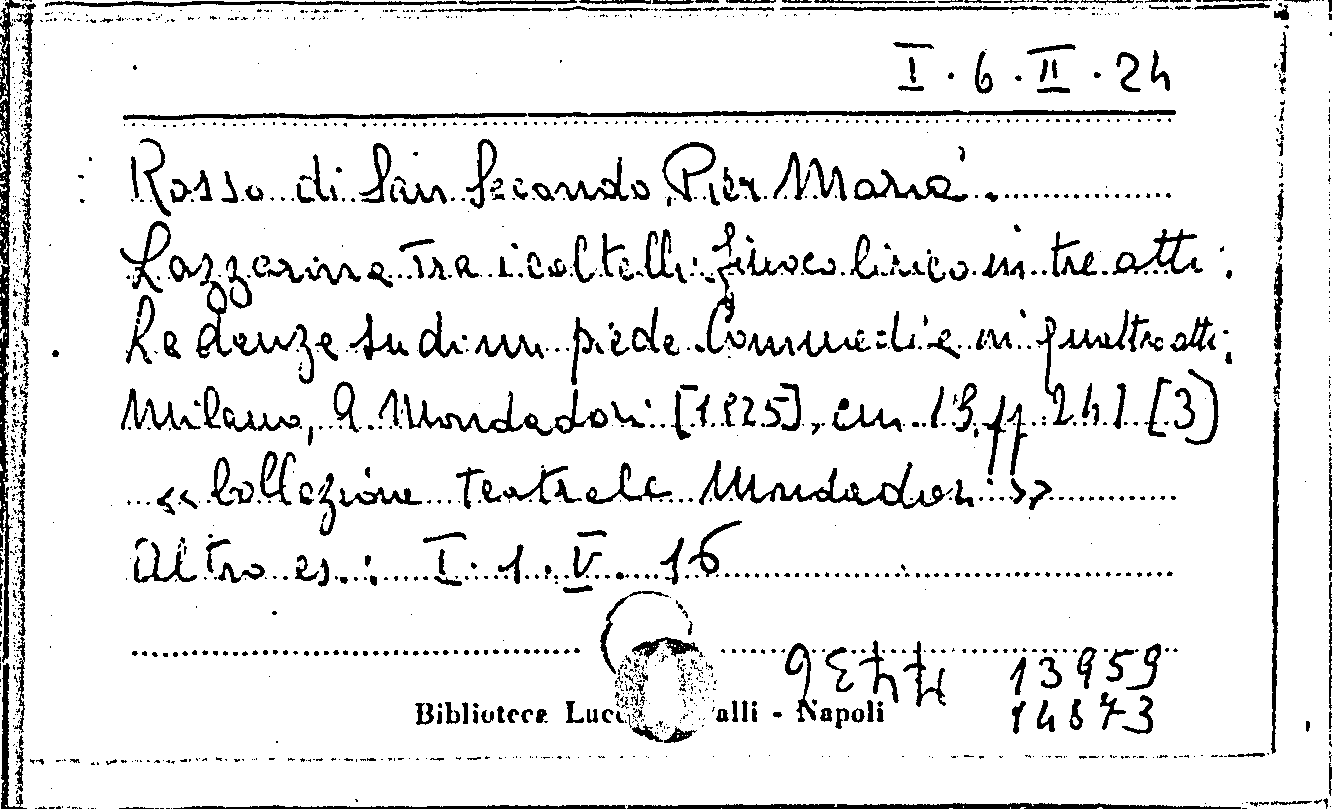 I. 6. II. 24
Rosso di San Secondo, Pier Maria.
Lazzarina tra i coltelli: giuoco lirico in tre atti;
La danza su di un piede. Commedia in quattro atti;
Milano, A. Mondadori [1925], cm. 19, pp 241 [3]
<<Collezione teatrale Mondadori>>
Altro es.: I. 1. V. 16
13959
14873
Biblioteca Luc alli - Napoli